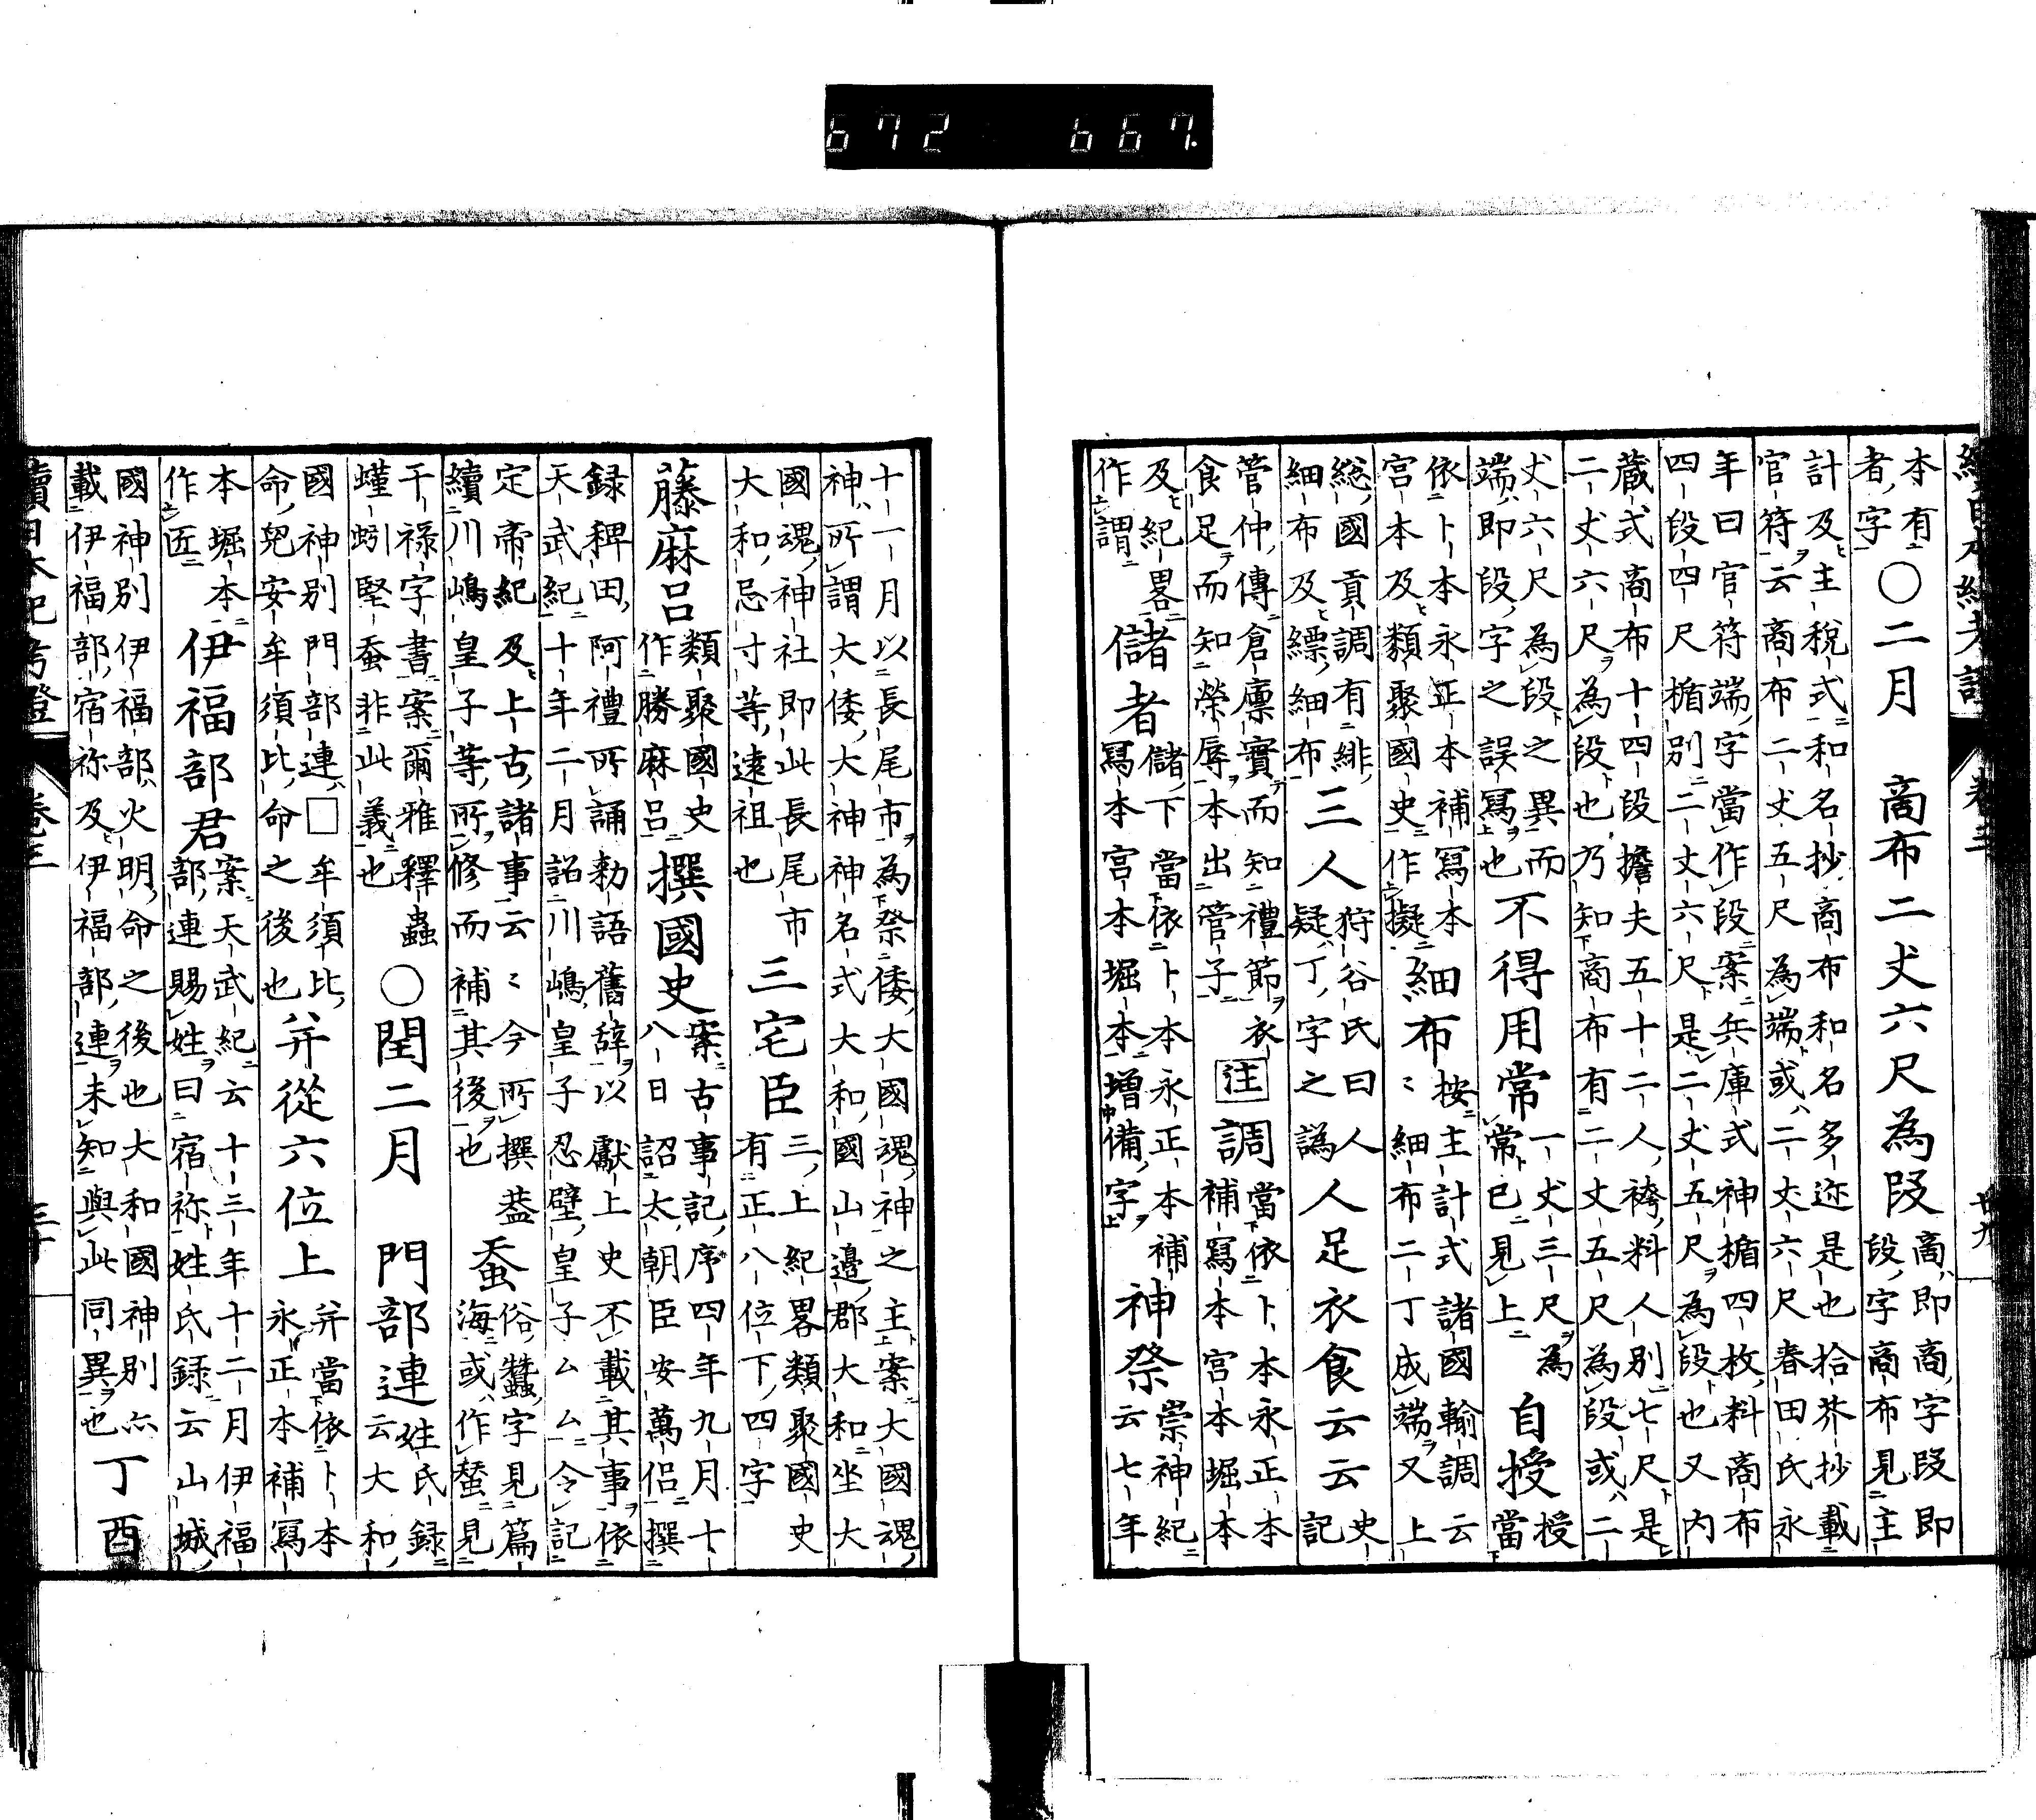 672 667.
本有
者字
○二月 商布二丈六尺為段
商即商字段即
段字商布見主
計及主税式和名抄商布和名多迩是也拾芥抄載
官符云商布二丈五尺為端或二丈六尺春田氏永
年曰官符端字當作段案兵庫式神楯四枚料商布
四段四尺楯別二丈六尺是二丈五尺為段也又内
蔵式商布十四段擔夫五十二人袴料人別七尺是
二丈六尺為段也乃知商布有二丈五尺為段或二
丈六尺為段之異而
端即段字之誤寫也
不得用常
一丈三尺為
常已見上
自授
授當
依卜本永正本補寫本
宮本及類聚國史作擬
細布〻
按主計式諸國輸調云
細布二丁成端又上
総國貢調有緋
細布及縹細布
三人
狩谷氏曰人
疑丁字之譌
人足衣食云云
史記
管仲傳倉廩實而知禮節衣
食足而知榮辱本出管子
注
調
當依卜本永正本
補寫本宮本堀本
及紀畧
作謂
儲者
儲下當依卜本永正本補
寫本宮本堀本増備字
神祭
崇神紀
云七年
十一月以長尾市為祭倭大國魂神之主案大國魂
神所謂大倭大神神名式大和國山邉郡大和坐大
國魂神社即此長尾市
大和忌寸等遠祖也
三宅臣
三上紀畧類聚國史
有正八位下四字
藤麻呂
類聚國史
作勝麻呂
撰國史
案古事記序四年九月十
八日詔太朝臣安萬侶撰
録稗田阿禮所誦勅語舊辞以獻上史不載其事依
天武紀十年二月詔川嶋皇子忍壁皇子ムム令記
定帝紀及上古諸事云〻今所撰葢
續川嶋皇子等所修而補其後也
蚕
俗蠶字見篇
海或作蝅見
干禄字書案爾雅釋蟲
螼蚓堅蚕非此義也
○閏二月 門部連
姓氏録
云大和
國神別門部連□牟須比
命兒安牟須比命之後也
并從六位上
并當依卜本
永正本補寫
本堀本
作匠
伊福部君
案天武紀云十三年十二月伊福
部連賜姓曰宿祢姓氏録云山城
國神別伊福部火明命之後也大和國神別亦
載伊福部宿祢及伊福部連未知與此同異也
丁酉